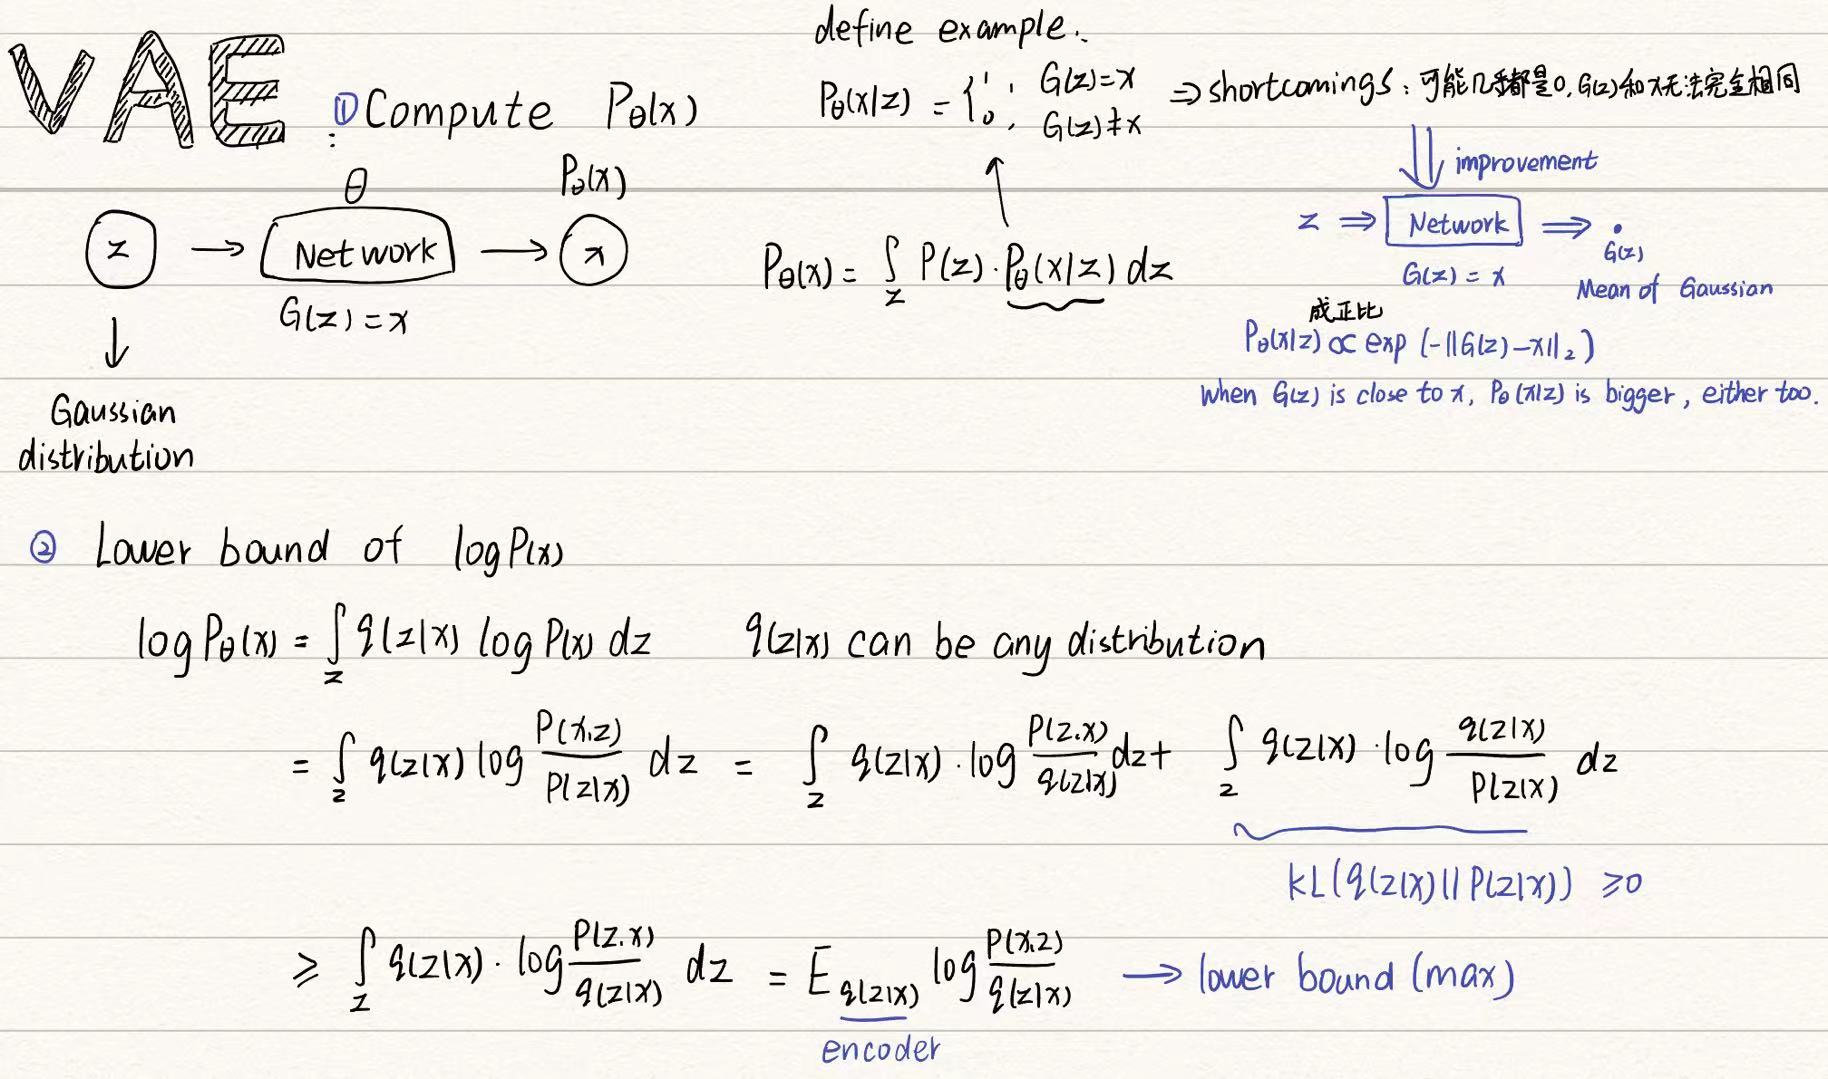 VAE
① Compute Pθ(x)
:
z → Network → x
θ
Pθ(x)
G(z) = x
↓
Gaussian
distribution
define example.
Pθ(x|z) = { 1, G(z)=x
0, G(z)≠x
⇒ shortcomings: 可能几乎都是0, G(z)和x无法完全相同
Pθ(x) = ∫z P(z)·Pθ(x|z) dz
improvement
z ⇒ Network ⇒ ·
G(z)
G(z) = x
Mean of Gaussian
成正比
Pθ(x|z) ∝ exp (-||G(z)-x||₂)
when G(z) is close to x, Pθ(x|z) is bigger, either too.
② Lower bound of log P(x)
log Pθ(x) = ∫z q(z|x) log P(x) dz q(z|x) can be any distribution
= ∫z q(z|x) log P(x,z)/P(z|x) dz = ∫z q(z|x)·log P(z,x)/q(z|x) dz + ∫z q(z|x)·log q(z|x)/P(z|x) dz
KL(q(z|x)||P(z|x)) ≥0
≥ ∫z q(z|x)·log P(z,x)/q(z|x) dz = E q(z|x) log P(x,z)/q(z|x) → lower bound (max)
encoder